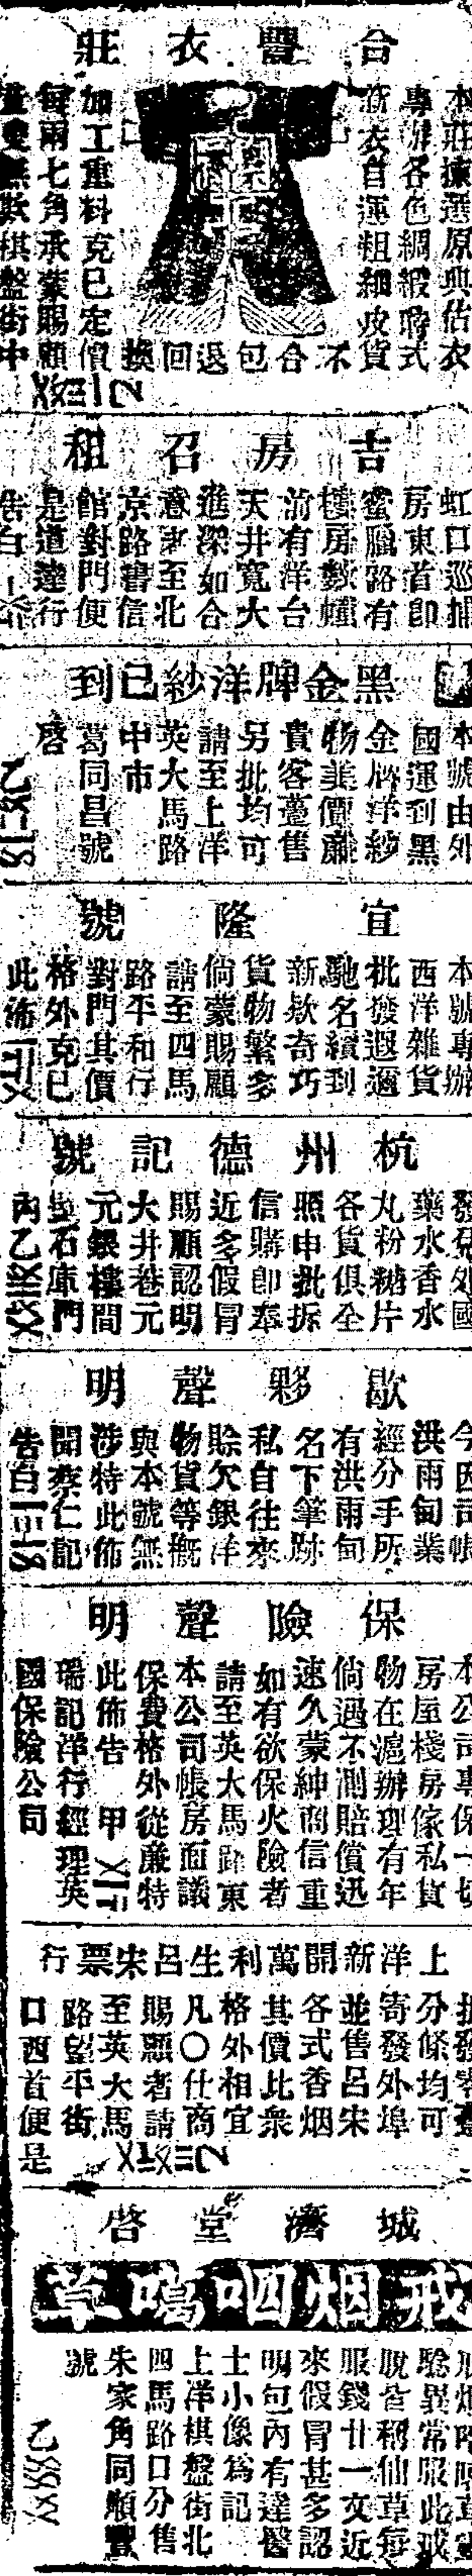 合豐衣莊
本莊揀選原典估衣
專辦各色綢緞時式
新衣自運粗細皮貨
不合包退回換
加工重料克已定價
每兩七角承蒙賜顧
無欺棋盤街中
吉房召租
虹口巡捕
房東首卽
蜜臘路有
樓房數幢
前有洋台
天井寬大
進深如合
意者至北
京路書信
館對門便
是道達行
告白
黑金牌洋紗已到
本號由外
國運到黑
金牌洋紗
物美價廉
貴客躉售
另批均可
請至上洋
英大馬路
中市
葛同昌號
啓
宜隆號
本號專辦
西洋雜貨
批發遐邇
馳名續到
新欵奇巧
貨物繁多
倘蒙賜顧
請至四馬
路平和行
對門其價
格外克已
此佈
杭州德記號
發兌外國
藥水香水
丸粉糖片
各貨俱全
照申批拆
信購卽奉
近多假冒
賜顧認明
大井巷元
元銀樓間
壁石庫門
內乙
歇夥聲明
今因司帳
洪雨甸業
經分手所
有洪雨甸
名下筆跡
私自往來
賒欠銀洋
物貨等概
與本號無
涉特此佈
聞蔡仁記
告白
保險聲明
本公司專保一切
房屋棧房傢私貨
物在滬辦理有年
倘遇不測賠償迅
速久蒙紳商信重
如有欲保火險者
請至英大馬路東
本公司帳房面議
保費格外從廉特
此佈告 甲
瑞記洋行經理英
國保險公司
上洋新開萬利生呂宋票行
批發零躉
分條均可
寄發外埠
並售呂宋
各式香烟
其價比衆
格外相宜
凡〇仕商
賜顧者請
至英大馬
路望平街
口西首便是
城濟堂啓
戒烟呬嗚草
驗異常服此戒
脫皆稱仙草每
服錢廿一文近
來假冒甚多認
明包內有達醫
士小像爲記
上洋棋盤街北
四馬路口分售
朱家角同順豐
號
乙